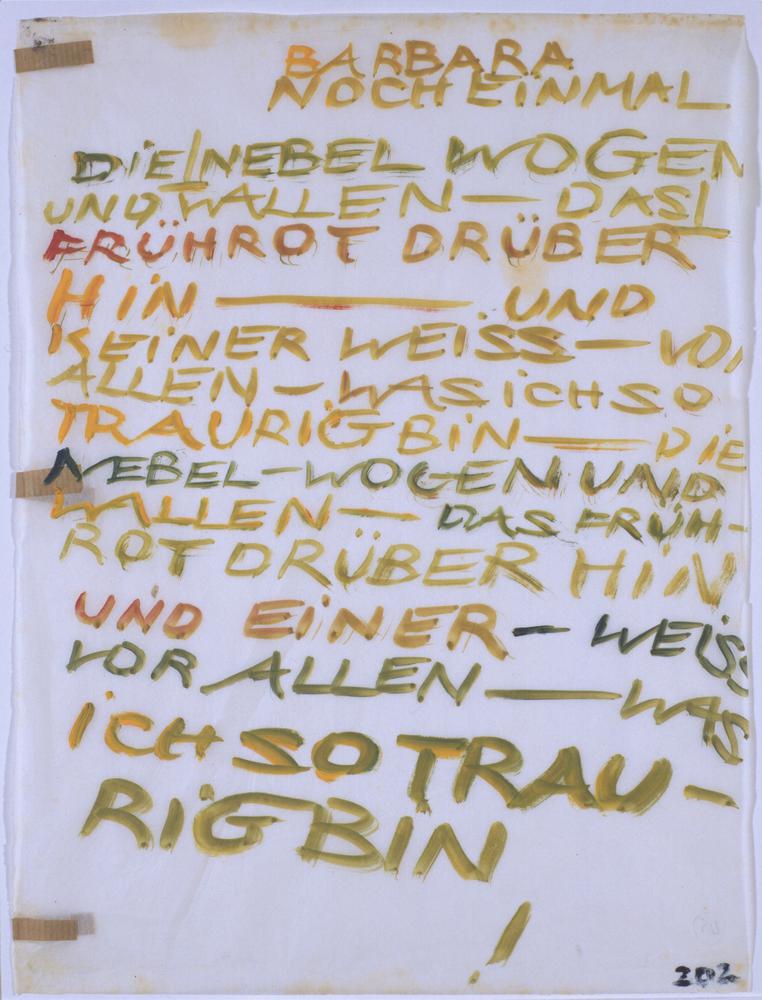 BARBARA
NOCH EiNMAL
DiE/NEBEL WOGEN
UND WALLEN — DAS/
FRÜHROT DRÜBER
HiN — UND
KEiNER WEISS — VOR
ALLEN — WAS iCH SO
TRAURiG BiN — DiE
NEBEL-WOGEN UND
WALLEN — DAS FRÜH-
ROT DRÜBER HIN
UND EiNER — WEiSS
VOR ALLEN — WAS
iCH SO TRAU-
RiG BIN
!
202